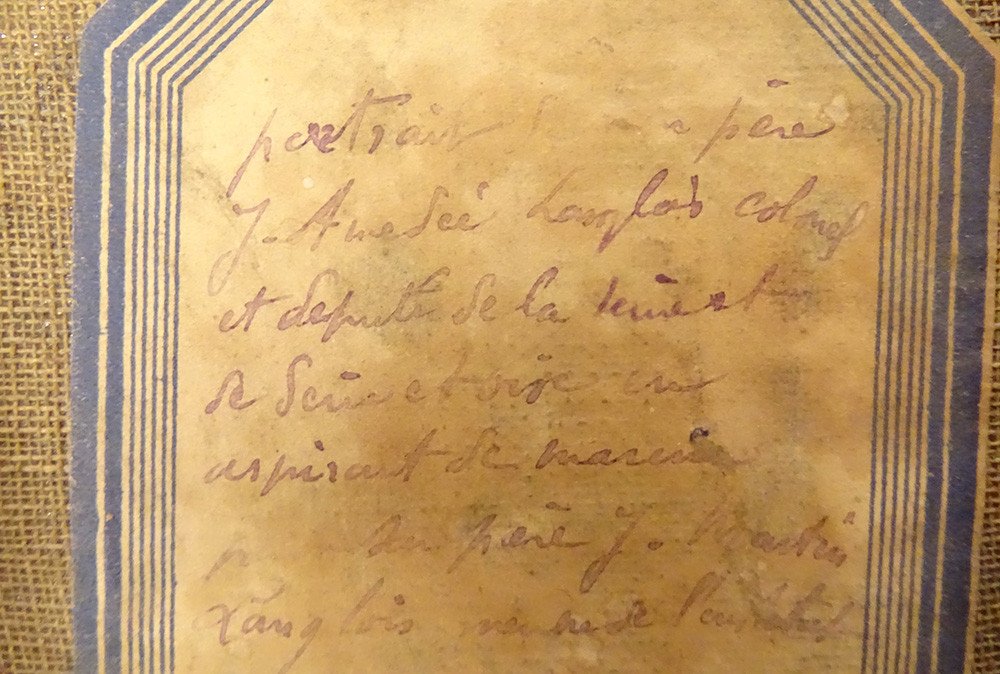 portrait père
J. Amedée Langlois colonel
et deputé de la Seine et
de Seine et oise en
aspirant de marine
son père J. Martin
Langlois membre de l'institut